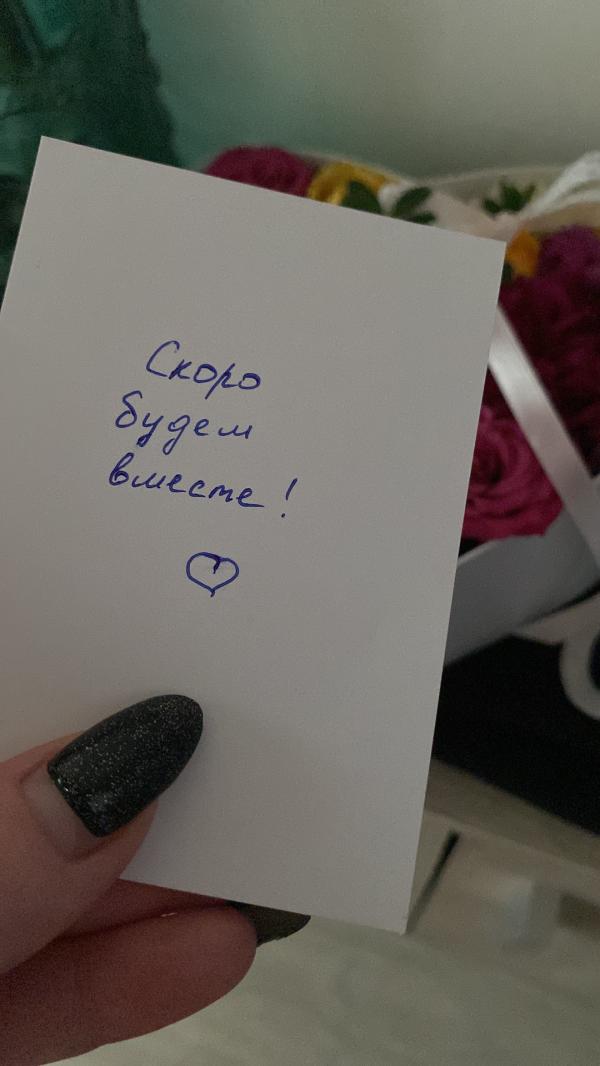 Скоро
будем
вместе!
♡